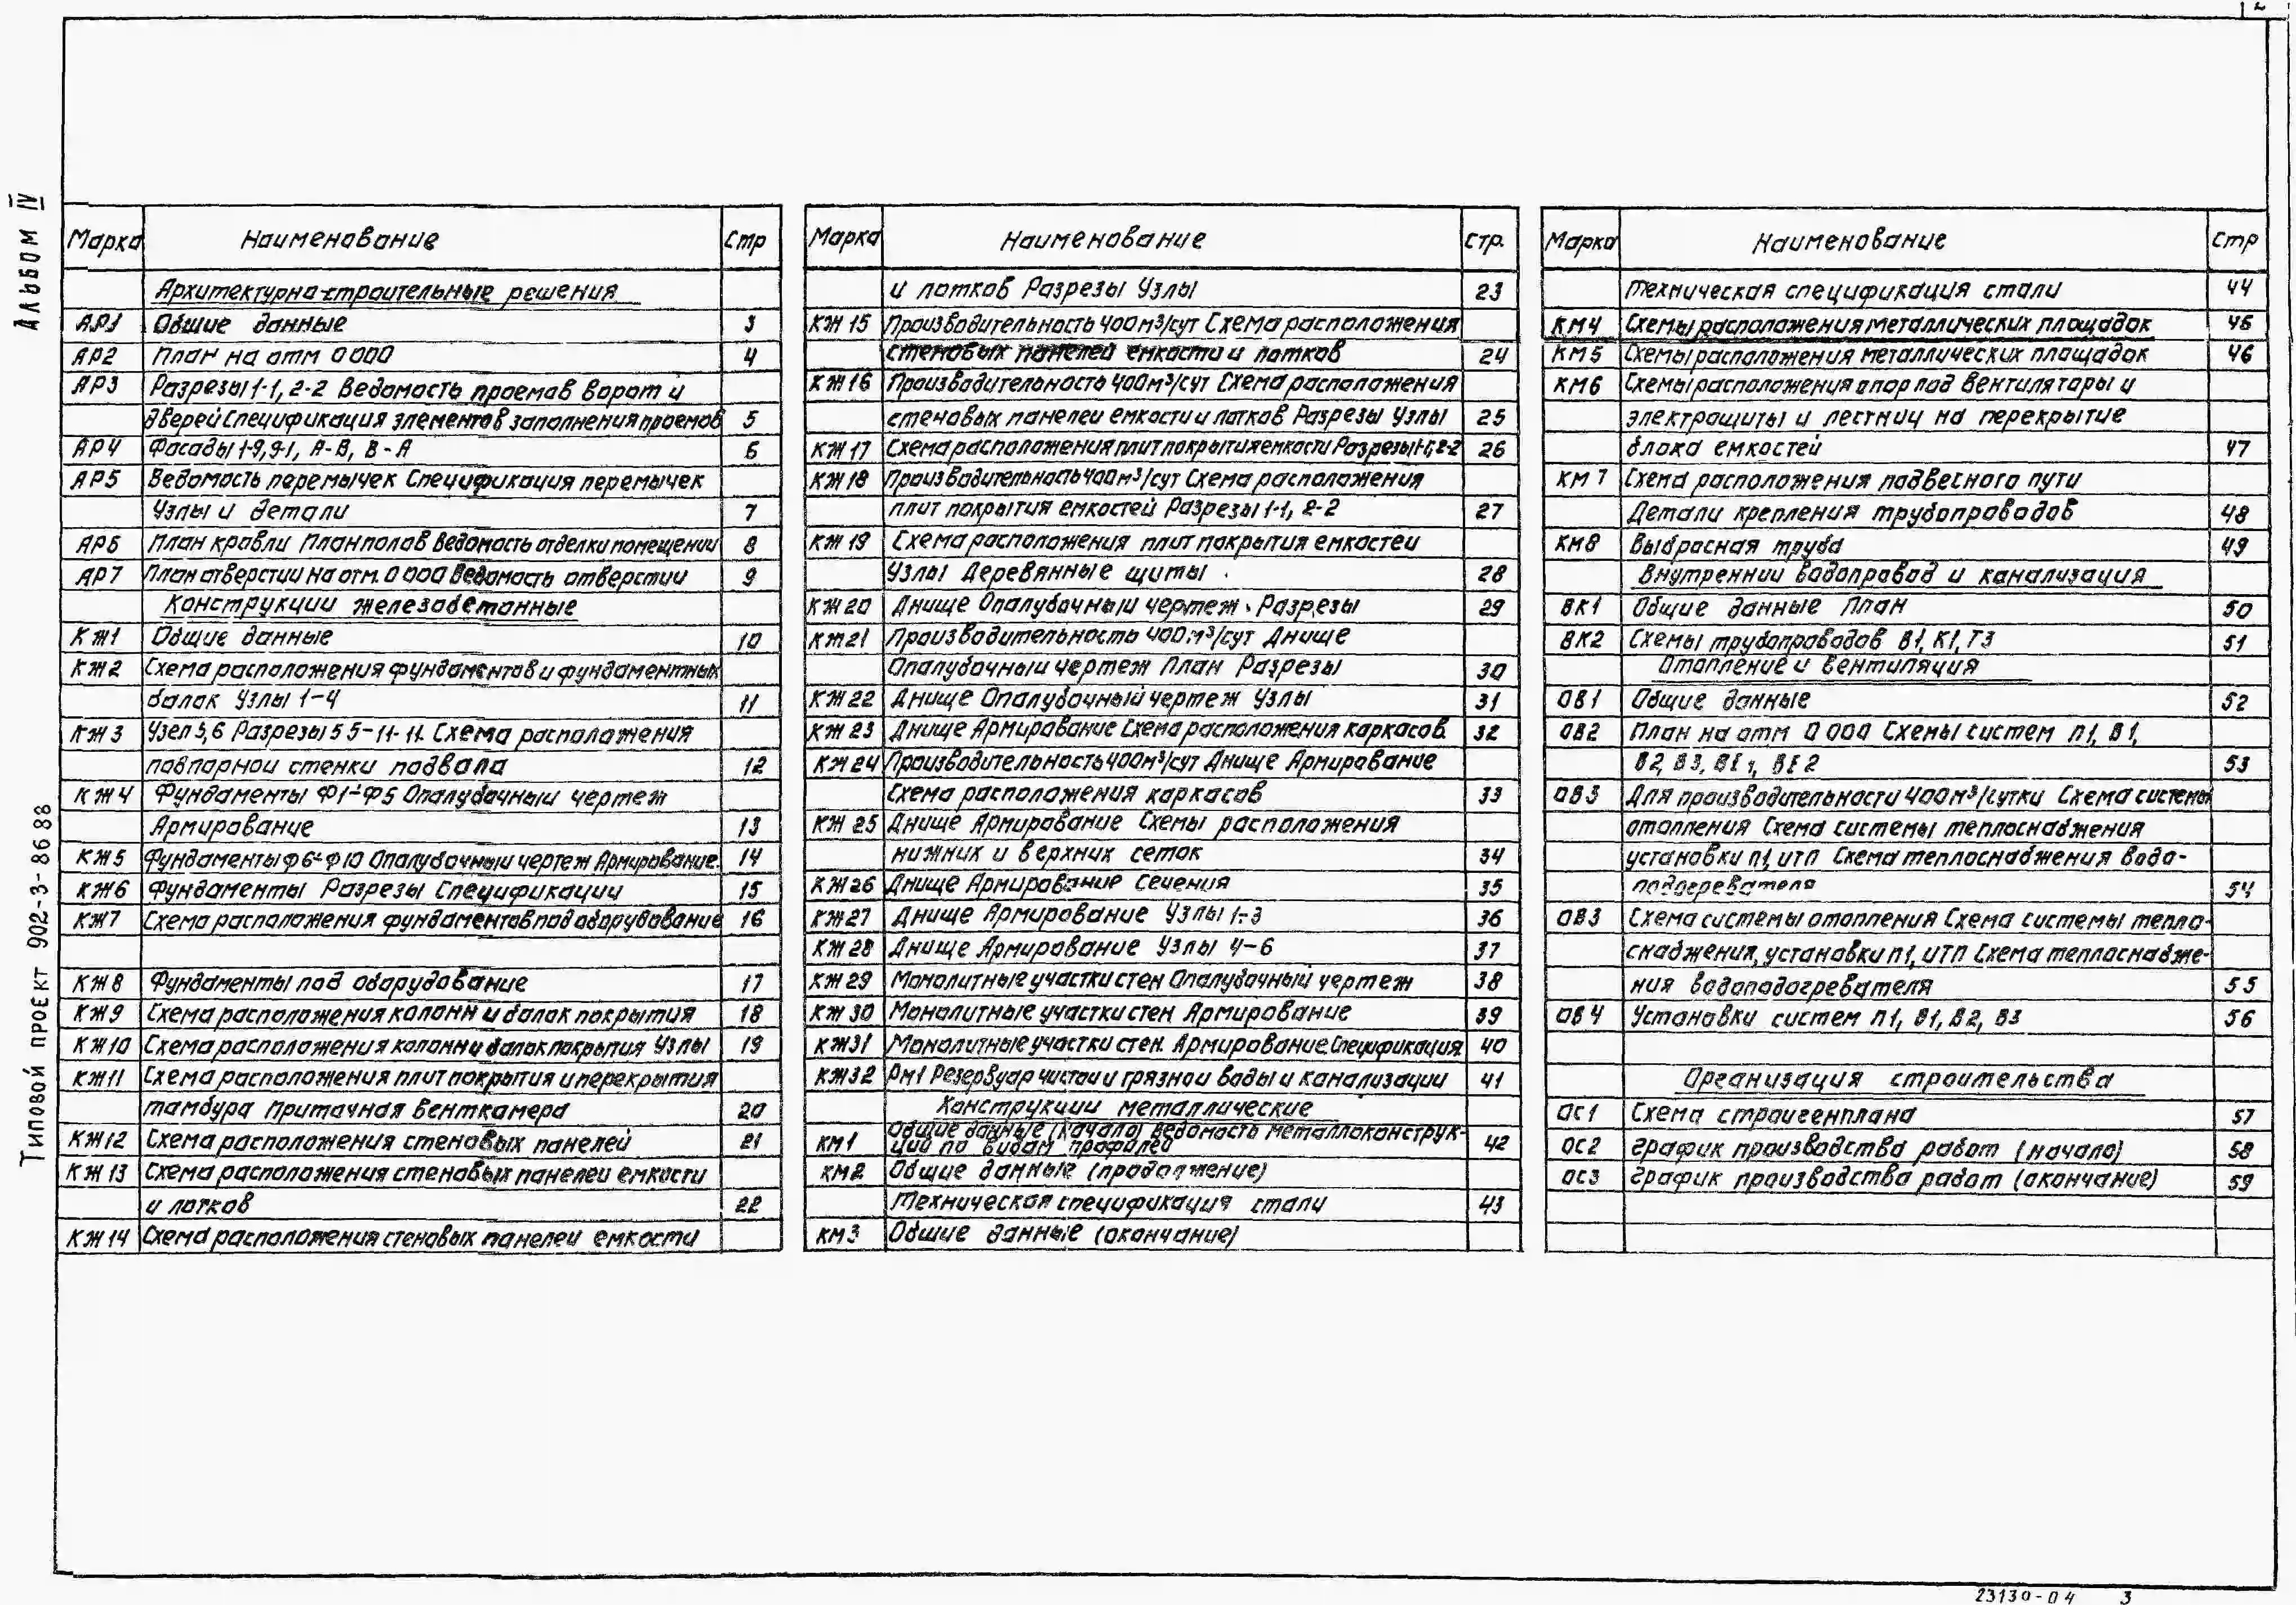 2
Альбом IV
Типовой проект 902-3-86 88
Марка Наименование Стр
Архитектурно-строительные решения
АР1 Общие данные 3
АР2 План на отм 0 000 4
АР3 Разрезы 1-1, 2-2 Ведомость проемов ворот и
дверей Спецификация элементов заполнения проемов 5
АР4 Фасады 1-9, 9-1, А-В, В-А 6
АР5 Ведомость перемычек Спецификация перемычек
Узлы и детали 7
АР6 План кровли План полов Ведомость отделки помещении 8
АР7 План отверстии на отм. 0 000 Ведомость отверстии 9
Конструкции железобетонные
КЖ1 Общие данные 10
КЖ2 Схема расположения фундаментов и фундаментных
балок Узлы 1-4 11
КЖ3 Узел 5,6 Разрезы 5 5-11-11. Схема расположения
подпорнои стенки подвала 12
КЖ4 Фундаменты Ф1-Ф5 Опалубочныи чертеж
Армирование 13
КЖ5 Фундаменты Ф6-Ф10 Опалубочныи чертеж Армирование. 14
КЖ6 Фундаменты Разрезы Спецификации 15
КЖ7 Схема расположения фундаментов под оборудование 16
КЖ8 Фундаменты под оборудование 17
КЖ9 Схема расположения колонн и балок покрытия 18
КЖ10 Схема расположения колонн и балок покрытия Узлы 19
КЖ11 Схема расположения плит покрытия и перекрытия
тамбура Приточная венткамера 20
КЖ12 Схема расположения стеновых панелей 21
КЖ13 Схема расположения стеновых панелеи емкости
и лотков 22
КЖ14 Схема расположения стеновых панелеи емкости
Марка Наименование Стр.
и лотков Разрезы Узлы 23
КЖ15 Производительность 400м³/сут Схема расположения
стеновых панелей емкости и лотков 24
КЖ16 Производительность 400м³/сут Схема расположения
стеновых панелеи емкости и лотков Разрезы Узлы 25
КЖ17 Схема расположения плит покрытия емкости Разрезы 1-1, 2-2 26
КЖ18 Производительность 400м³/сут Схема расположения
плит покрытия емкостей Разрезы 1-1, 2-2 27
КЖ19 Схема расположения плит покрытия емкостеи
Узлы Деревянные щиты 28
КЖ20 Днище Опалубочныи чертеж Разрезы 29
КЖ21 Производительность 400м³/сут Днище
Опалубочныи чертеж План Разрезы 30
КЖ22 Днище Опалубочный чертеж Узлы 31
КЖ23 Днище Армирование Схема расположения каркасов. 32
КЖ24 Производительность 400м³/сут Днище Армирование
Схема расположения каркасов 33
КЖ25 Днище Армирование Схемы расположения
нижних и верхних сеток 34
КЖ26 Днище Армирование Сечения 35
КЖ27 Днище Армирование Узлы 1-3 36
КЖ28 Днище Армирование Узлы 4-6 37
КЖ29 Монолитные участки стен Опалубочный чертеж 38
КЖ30 Монолитные участки стен Армирование 39
КЖ31 Монолитные участки стен. Армирование. Спецификация 40
КЖ32 Рм1 Резервуар чистои и грязнои воды и канализации 41
Конструкции металлические
КМ1 Общие данные (начало) Ведомость металлоконструк-
ций по видам профилей 42
КМ2 Общие данные (продолжение)
Техническая спецификация стали 43
КМ3 Общие данные (окончание)
Марка Наименование Стр
Техническая спецификация стали 44
КМ4 Схемы расположения металлических площадок 45
КМ5 Схемы расположения металлических площадок 46
КМ6 Схемы расположения опор под вентиляторы и
электрощиты и лестниц на перекрытие
блока емкостей 47
КМ7 Схема расположения подвесного пути
Детали крепления трубопроводов 48
КМ8 Выбросная труба 49
Внутреннии водопровод и канализация
ВК1 Общие данные План 50
ВК2 Схемы трубопроводов В1, К1, Т3 51
Отопление и вентиляция
ОВ1 Общие данные 52
ОВ2 План на отм 0 000 Схемы систем П1, В1,
В2, В3, ВЕ1, ВЕ2 53
ОВ3 Для производительности 400м³/сутки Схема системы
отопления Схема системы теплоснабжения
установки П1, ИТП Схема теплоснабжения водо-
подогревателя 54
ОВ3 Схема системы отопления Схема системы тепло-
снабжения, установки П1, ИТП Схема теплоснабже-
ния водоподогревателя 55
ОВ4 Установки систем П1, В1, В2, В3 56
Организация строительства
ОС1 Схема стройгенплана 57
ОС2 График производства работ (начало) 58
ОС3 График производства работ (окончание) 59
23130-04 3